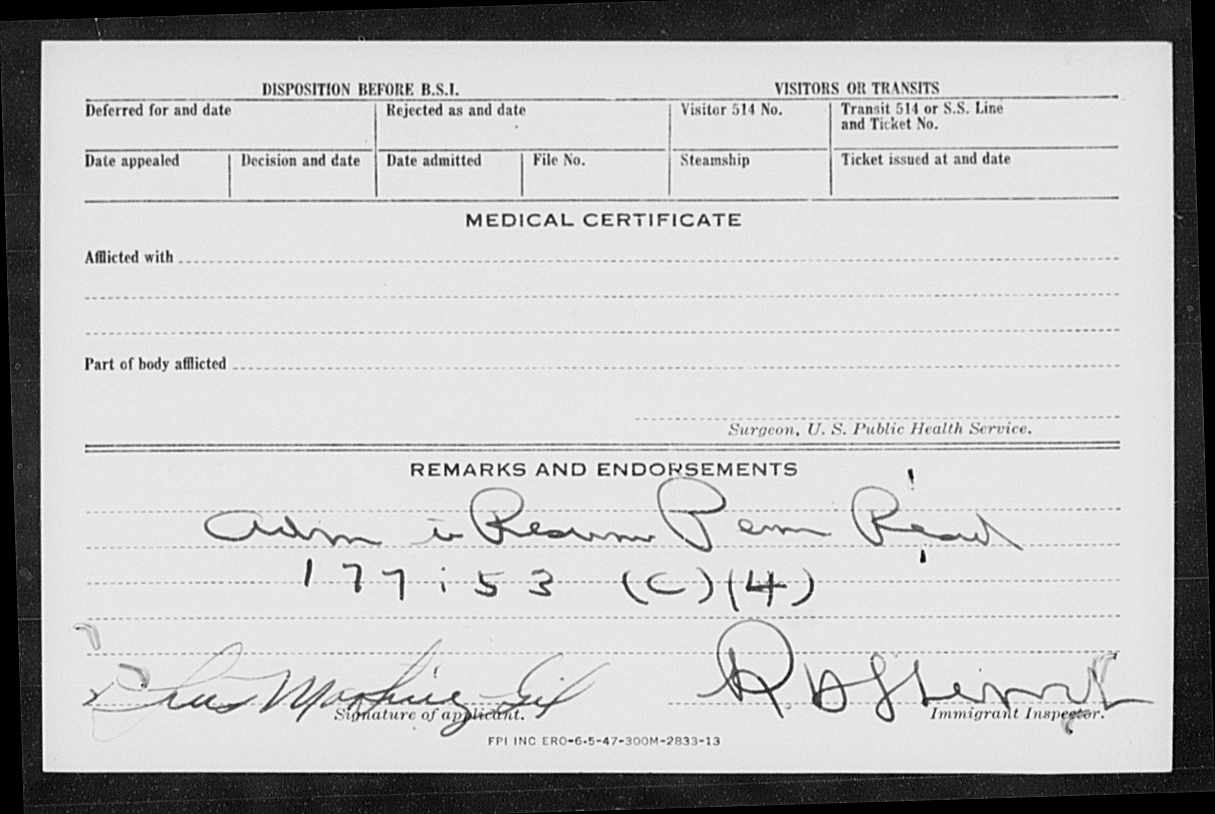 DISPOSITION BEFORE B.S.I. VISITORS OR TRANSITS
Deferred for and date Rejected as and date Visitor 514 No. Transit 514 or S.S. Line
and Ticket No.
Date appealed Decision and date Date admitted File No. Steamship Ticket issued at and date
MEDICAL CERTIFICATE
Afflicted with
Part of body afflicted
Surgeon, U. S. Public Health Service.
REMARKS AND ENDORSEMENTS
Adm to Resume Perm Resid
177.53 (C)(4)
Martinez Gil
Signature of applicant. Immigrant Inspector.
FPI INC ERO-6-5-47-300M-2833-13